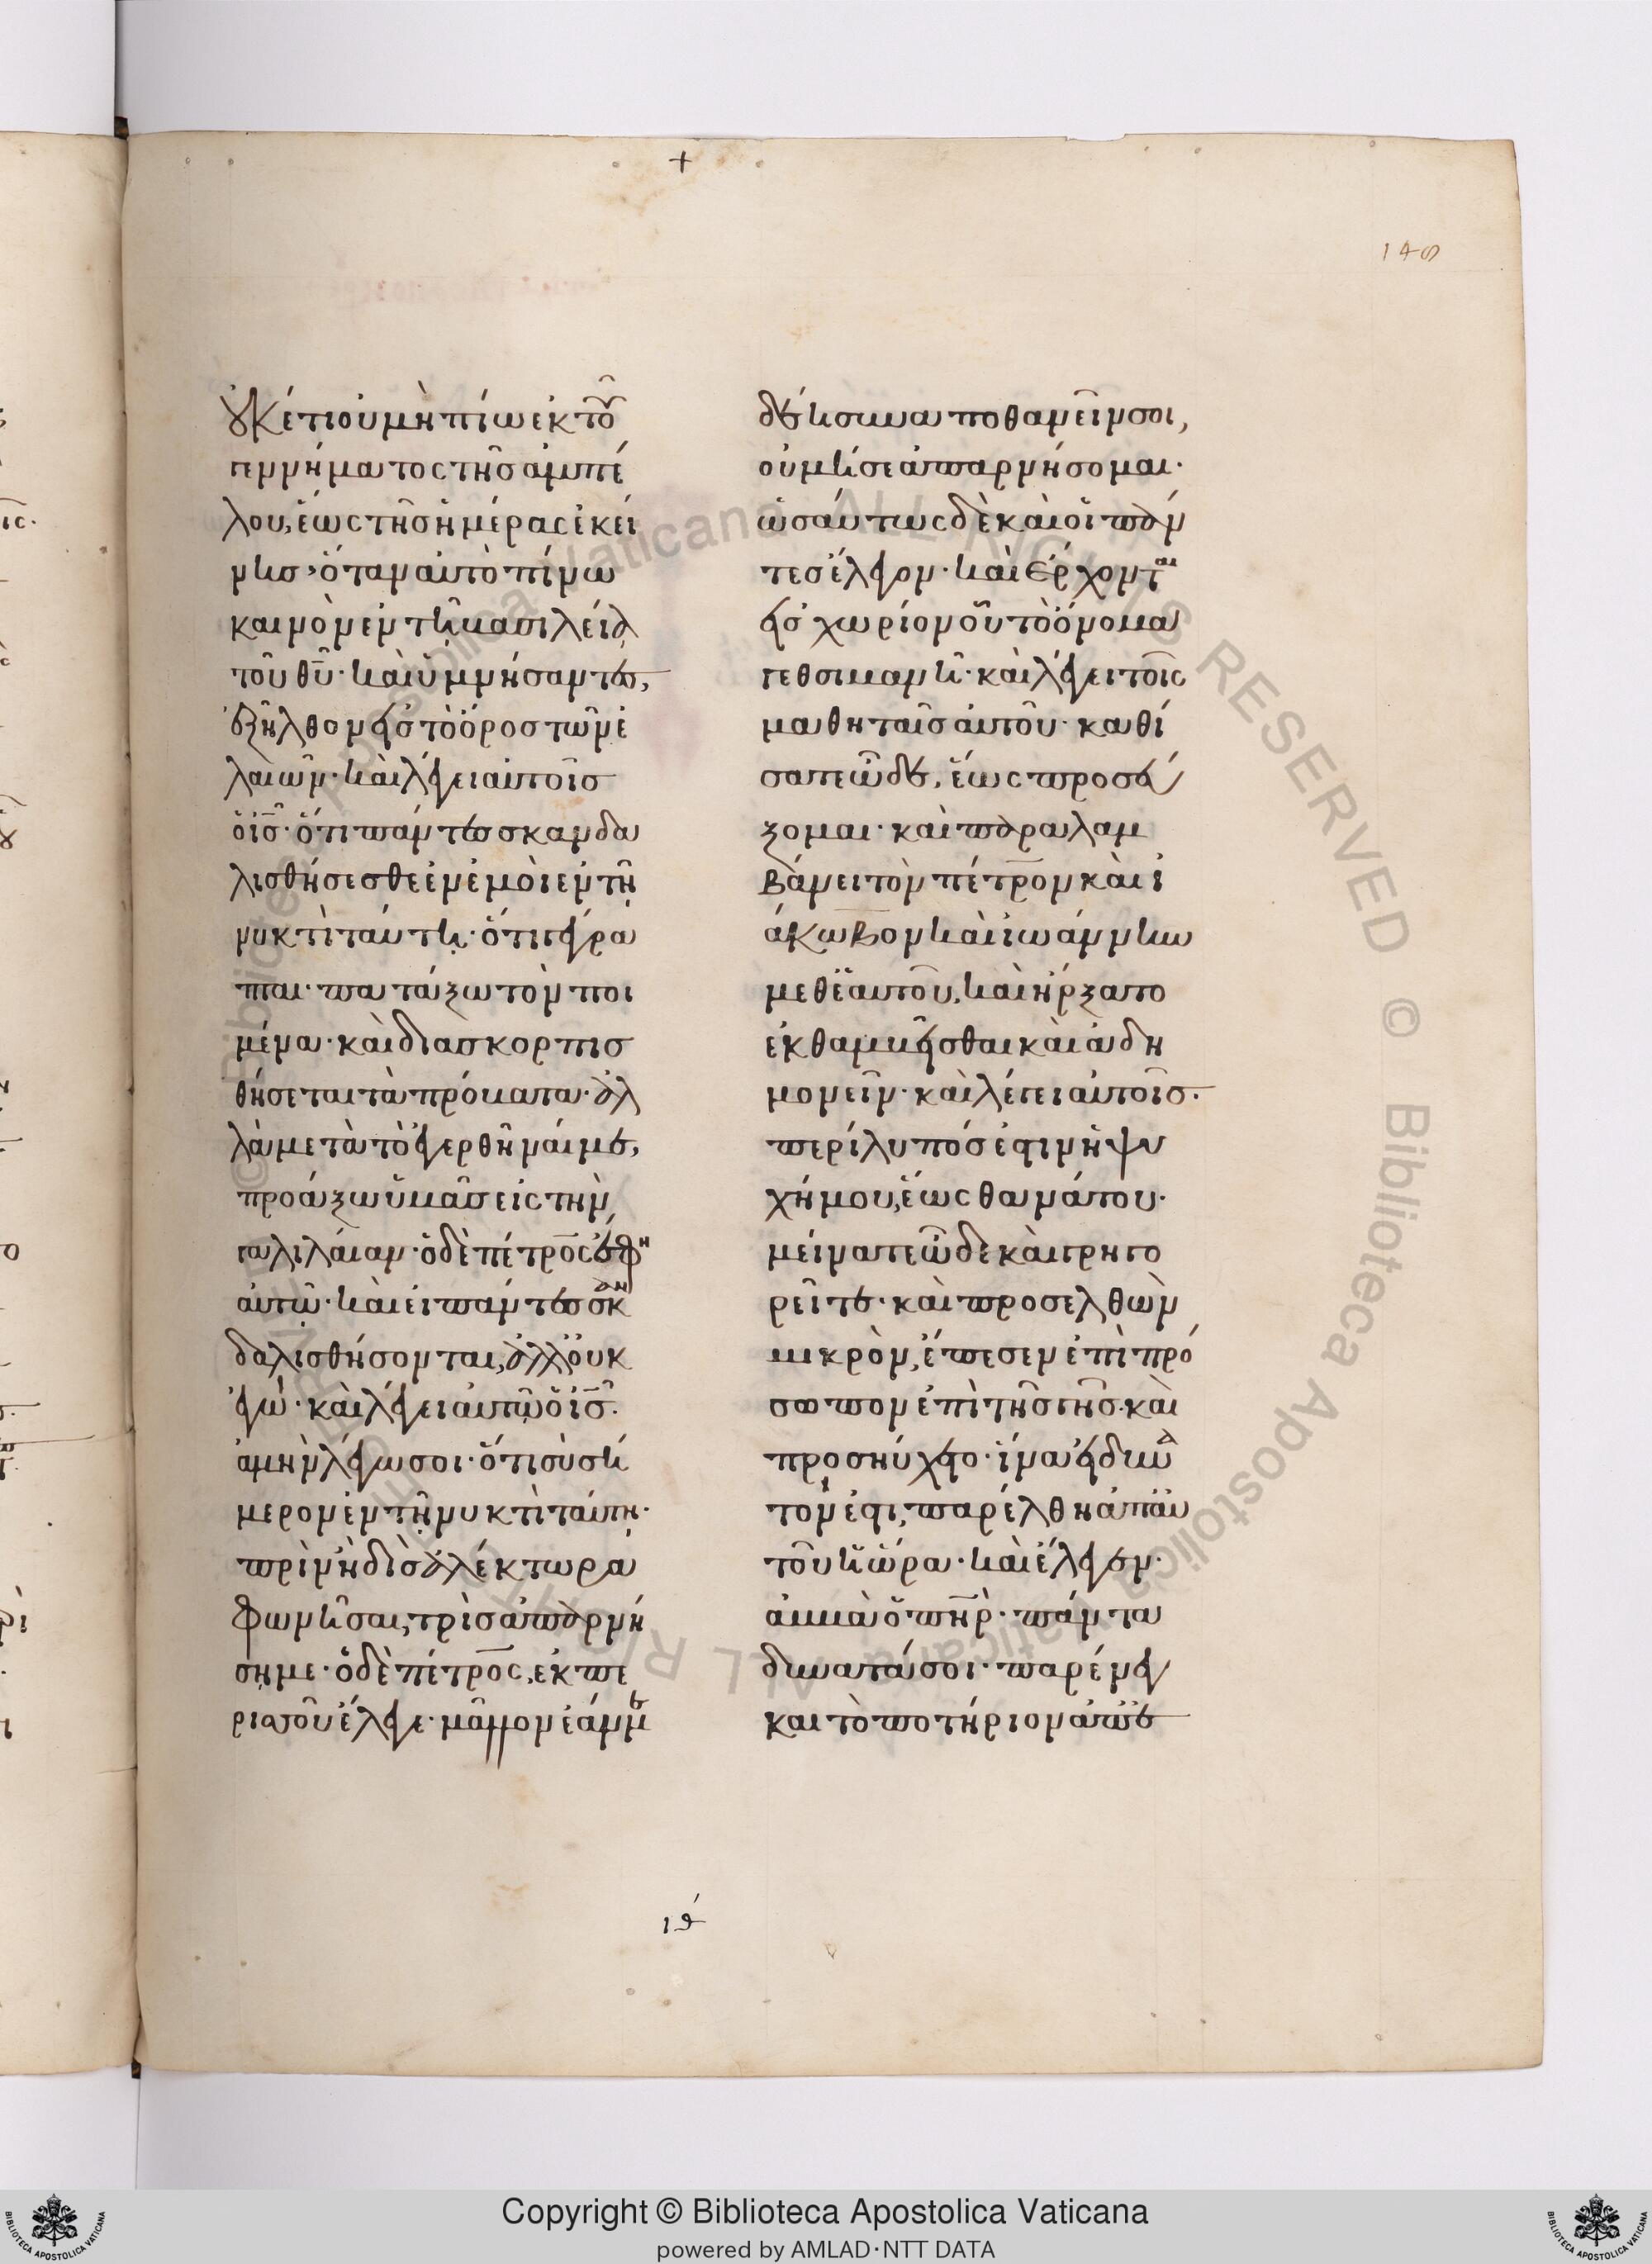 +
149
οὐκέτι οὐ μὴ πίω ἐκ τοῦ
γεννήματος τῆς ἀμπέ
λου, ἕως τῆς ἡμέρας ἐκεί
νης, ὅταν αὐτὸ πίνω
καινὸν ἐν τῆ βασιλεία
τοῦ θῦ· καὶ ὑμνήσαντες,
ἐξῆλθον εἰς τὸ ὄρος τῶν ἐ
λαιῶν· καὶ λέγει αὐτοῖς
ὁ ις· ὅτι πάντες σκανδα
λισθήσεσθε ἐν ἐμοὶ ἐν τῆ
νυκτὶ ταύτη· ὅτι γέγρα
πται· πατάξω τὸν ποι
μένα· καὶ διασκορπισ
θήσεται τὰ πρόβατα· ἀλ
λὰ μετὰ τὸ ἐγερθῆναί με,
προάξω ὑμᾶς εἰς τὴν
γαλιλαίαν· ὁ δὲ πέτρος ἔφη
αὐτῶ· καὶ εἰ πάντες σκαν
δαλισθήσονται, ἀλλ' οὐκ
ἐγώ· καὶ λέγει αὐτῶ ὁ ις·
ἀμὴν λέγω σοι· ὅτι σὺ σή
μερον ἐν τῆ νυκτὶ ταύτη·
πρὶν ἢ δὶς ἀλέκτορα
φωνῆσαι, τρὶς ἀπαρνή
ση με· ὁ δὲ πέτρος, ἐκ πε
ρισσοῦ ἔλεγε· μᾶλλον ἐάν με
δέη συναποθανεῖν σοι,
οὐ μή σε ἀπαρνήσομαι·
ὡσαύτως δὲ καὶ οἱ πάν
τες ἔλεγον· καὶ ἔρχονται
εἰς χωρίον οὗ τὸ ὄνομα
γεθσιμανῆ· καὶ λέγει τοῖς
μαθηταῖς αὐτοῦ· καθί
σατε ὧδε, ἕως προσεύ
ξομαι· καὶ παραλαμ
βάνει τὸν πέτρον καὶ ἰ
άκωβον καὶ ἰωάννην
μεθ' ἑαυτοῦ, καὶ ἤρξατο
ἐκθαμβεῖσθαι καὶ ἀδη
μονεῖν· καὶ λέγει αὐτοῖς·
περίλυπός ἐστιν ἡ ψυ
χή μου, ἕως θανάτου·
μείνατε ὧδε καὶ γρηγο
ρεῖτε· καὶ προσελθὼν
μικρὸν, ἔπεσεν ἐπὶ πρό
σωπον ἐπὶ τῆς γῆς· καὶ
προσηύχετο· ἵνα εἰ δυνα
τόν ἐστι, παρέλθη ἀπ' αὐ
τοῦ ἡ ὥρα· καὶ ἔλεγεν·
ἀββὰ ὁ πηρ· πάντα
δυνατά σοι· παρένεγ
και τὸ ποτήριον ἀπ' ἐ
ιθ
Copyright © Biblioteca Apostolica Vaticana
powered by AMLAD·NTT DATA